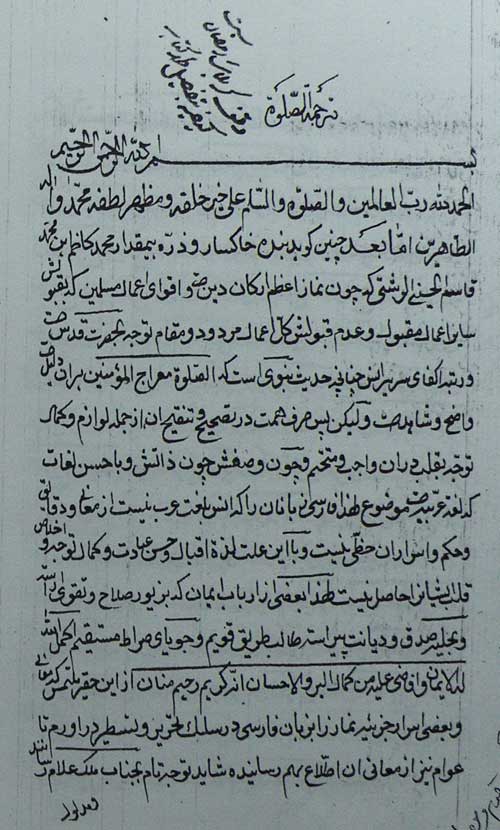 ترجمة الصلوة
بسم الله الرحمن الرحيم
الحمد لله رب العالمين والصلوة والسلم علی خير خلقه ومظهر لطفه محمد واله
الطاهرين امّا بعد چنين كويد بنده خاكسار و ذره بيمقدار محمد كاظم ابن محمد
قاسم الحسيني الرشتي كه چون نماز اعظم اركان دين و اقوای اعمال مسلمين كه بقبولش
ساير اعمال مقبول و عدم قبولش كل اعمال مردود و مقام توجه بحضرت قدس
و رتبه سريرانس چنانچه حديث نبوی است كه الصّلوة معراج المؤمنين بر ان دليل
واضح و شاهد وليكن پس صرف همت در تصحيح و تنقيح ان از جمله لوازم و كمال
توجه بقلب در ان واجب و متحتم و چون وصفش چون ذاتش با حسن لغات
كه لغة عربيه موضوع لهذا فارسی زبانان را كه انس بلغت عرب نيست از معانی و دقايق
و حكم و اسرار ان حظّی نيست و با اين علت لذة اقبال و حسن عبادت و كمال توجه و اخلاص
قلب ايشانرا حاصل نيست لهذا بعضی از ارباب ايمان كه بزيور صلاح و تقوی اراسته
و بحليه صدق و ديانت پيراسته طالب طريق قويم و جويای صراط مستقيم اكمل الله
له الايمان وافاض عليه من كمال البر والاحسان انه كريم رحيم منان از اين حقير ملتمس كه معانی
و بعضی اسرار جزئيه نماز را بزبان فارسی در سلك تحرير و تسطير در اورم تا
عوام نيز از معانی ان اطلاع بهم رسانيده شايد توجه تام بجناب ملك علام